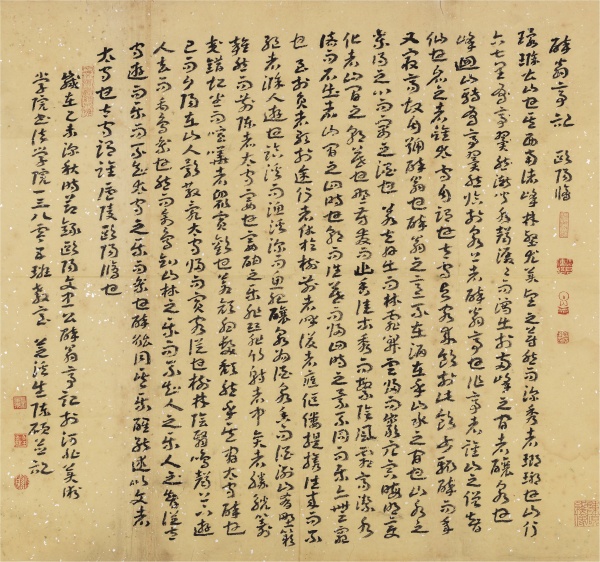 醉翁亭記 歐陽脩
環滁皆山也其西南諸峰林壑尤美望之蔚然而深秀者琅琊也山行
六七里漸聞水聲潺潺而瀉出於兩峰之間者釀泉也
峰回路轉有亭翼然臨於泉上者醉翁亭也作亭者誰山之僧智
仙也名之者誰太守自謂也太守與客來飲於此飲少輒醉而年
又最高故自號醉翁也醉翁之意不在酒在乎山水之間也山水之
樂得之心而寓之酒也若夫日出而林霏開雲歸而巖穴暝晦明變
化者山間之朝暮也野芳發而幽香佳木秀而繁陰風霜高潔水
落而石出者山間之四時也朝而往暮而歸四時之景不同而樂亦無窮
也至於負者歌於途行者休於樹前者呼後者應傴僂提攜往來而不
絕者滁人遊也臨溪而漁溪深而魚肥釀泉為酒泉香而酒洌山肴野蔌
雜然而前陳者太守宴也宴酣之樂非絲非竹射者中弈者勝觥籌
交錯起坐而喧嘩者眾賓歡也蒼顏白髮頹然乎其間者太守醉也
已而夕陽在山人影散亂太守歸而賓客從也樹林陰翳鳴聲上下遊
人去而禽鳥樂也然而禽鳥知山林之樂而不知人之樂人知從太
守遊而樂而不知太守之樂其樂也醉能同其樂醒能述以文者
太守也太守謂誰廬陵歐陽脩也
歲在乙未深秋時節錄歐陽文忠公醉翁亭記於河北美術
學院書法學院一三八零五班教室 芝溪生陳碩並記